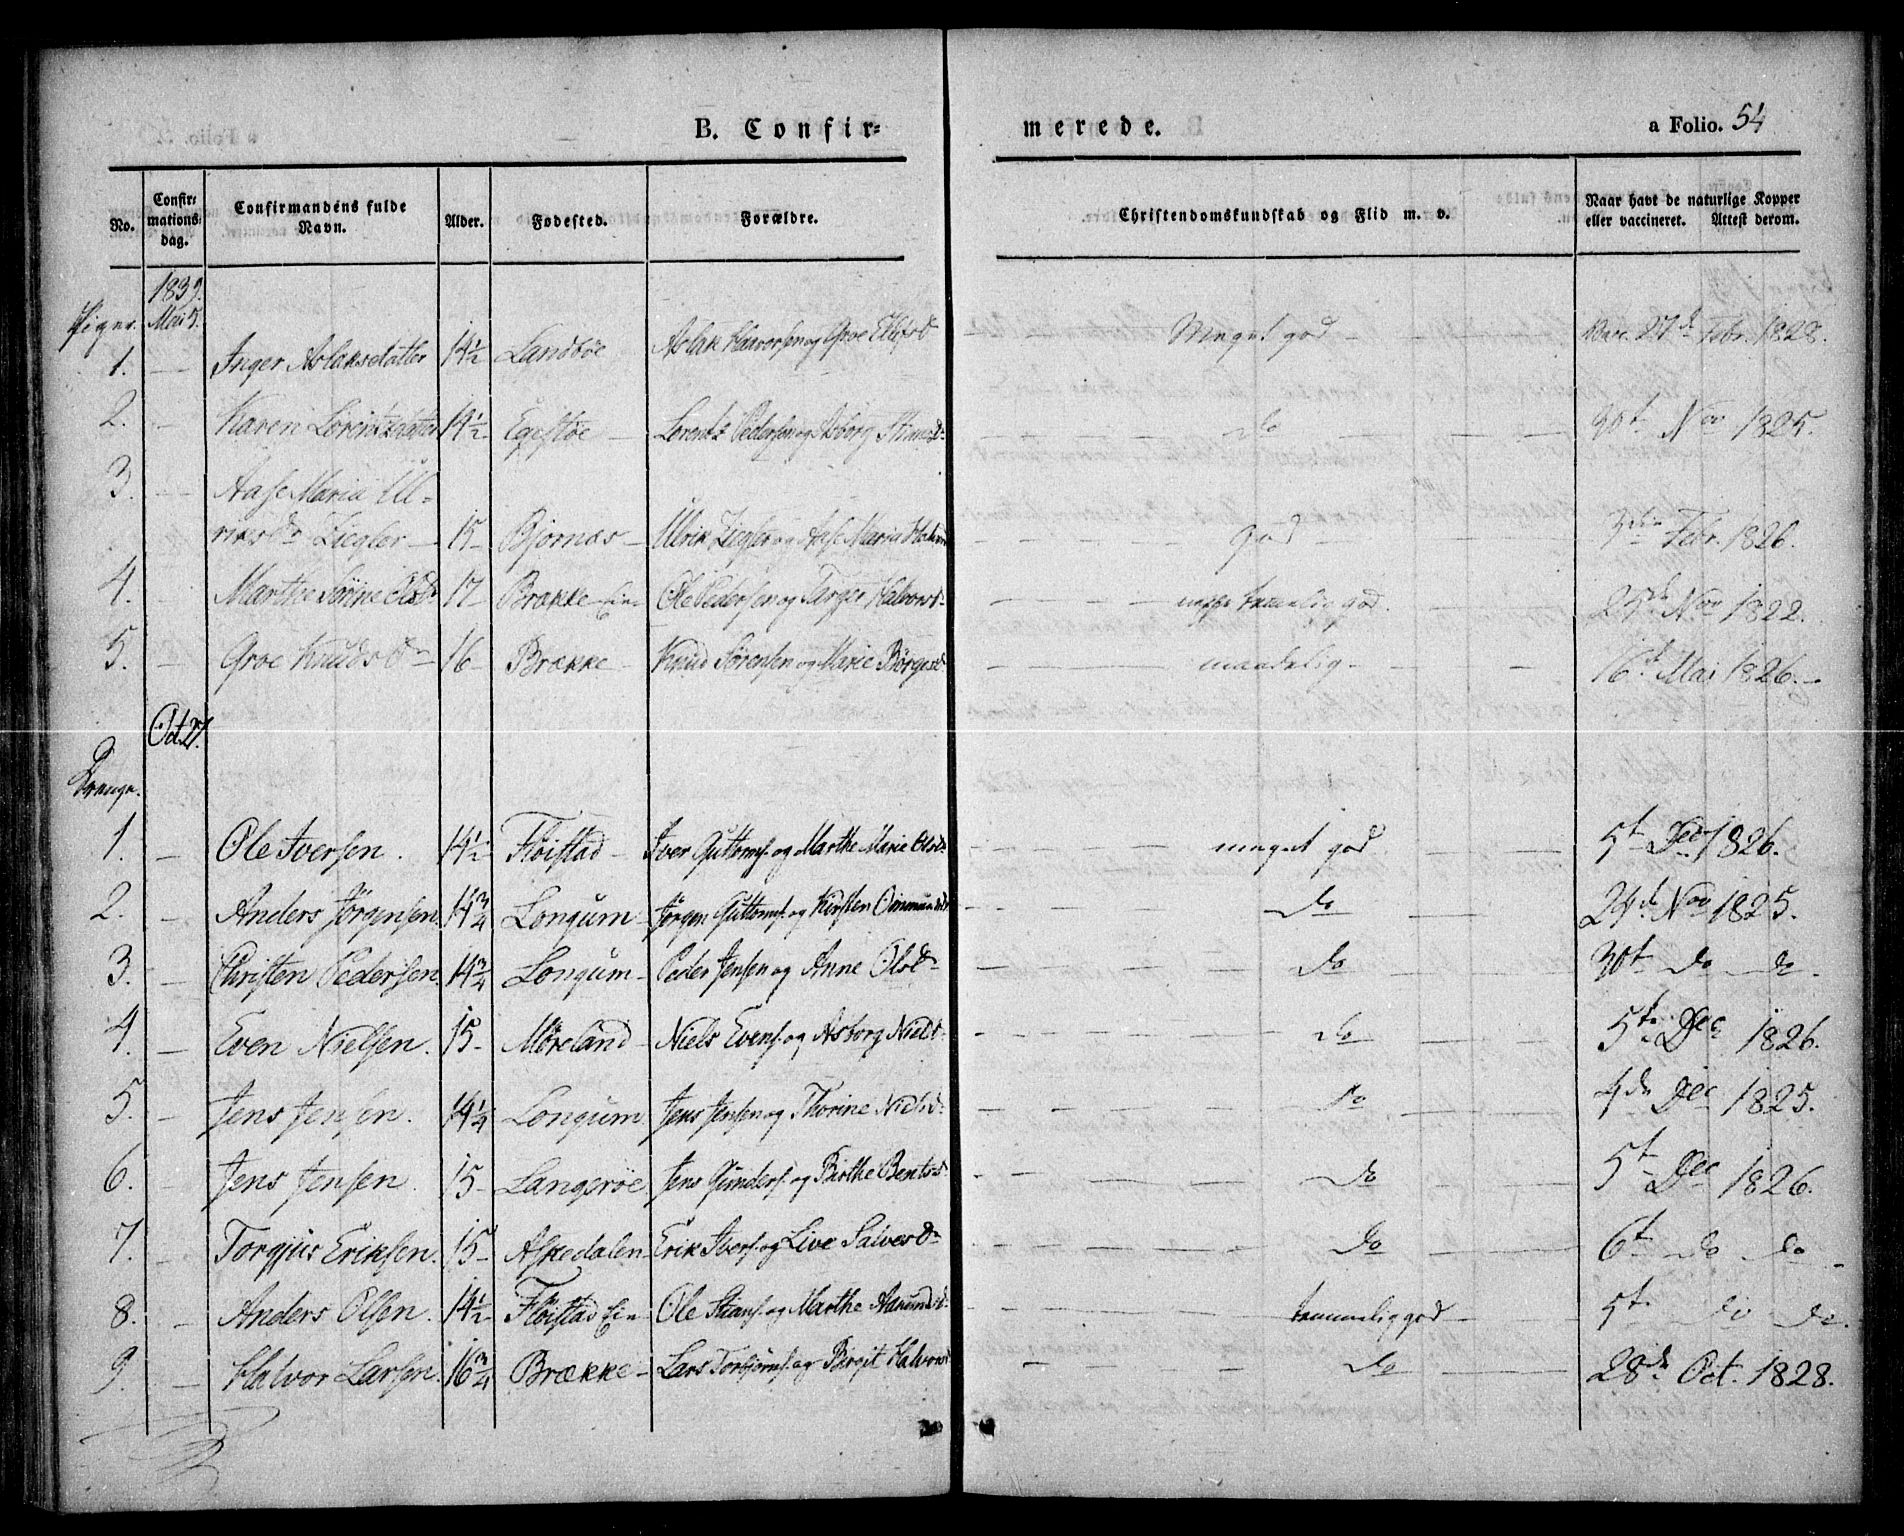 B. Confir=
merede.
a Folio. 54
No. Confir= mations= dag. Confirmandens fulde Navn. Alder. Fødested. Forældre. Christendomskundskab og Flid m. v. Naar havt de naturlige Kopper eller vaccineret. Attest derom.
1839.
Piger. Mai 5.
1. — Inger Aslaksdatter 14½ Landbøe Aslak Halvorsen og Groe Ellefsd Meget god 27d Febr. 1828.
2. — Karen Lørentsdatter 14½ Egestøe — Lorents Pedersen og Asborg do 30t Nov 1825.
3. — Aase Maria Ul=
riksdr Ziegler — 15 — Bjørnæs — Ulrik Ziegler og Aase Maria god Febr. 1826.
4. — Marthe Sørine Olsdr 17 — Brække Ole Pedersen og Targer Halvorsdr temmelig god. Nov 1822.
5. — Groe Knudsdr 16 — Brække — Knud Sørensen og Marie Børgesd maadelig — 16d Mai 1826. —
Oct. 27.
Drenge.
1. — Ole Iversen. 14½ Fløistad — Iver Guttoms. og Marthe Marie Olsdr meget god 5t Dec 1826.
2. — Anders Jørgensen. 14¾ Longum — Jørgen Guttoms. og Kirsten do 29d Nov 1825.
3. — Christen Pedersen. 14¾ Longum — Peder Jensen og Anne Olsdr do 30t do do.
4. — Even Nielsen. 15 — Møreland — Niels Evens. og Asborg Nielsdr do 5te Dec 1826.
5. — Jens Jensen. 14¼ Longum Jens Jensen og Thorine Nielsdr do 4de Dec 1825.
6. — Jens Jensen. 15 — Langerøe Jens Gunders. og Birthe Bentsd do 5t Dec 1826.
7. — Torgjus Eriksen. 15 — Askedalen — Erik Ivers. og Live Salvesdr do 6t do do
8. — Anders Olsen. 14½ Fløistad Ei= Ole Stians. og Marthe Aanundsd temmelig god 5te do do.
9. — Halvor Larsen. 16¾ Brække — Lars Torbjørns. og Birgit Halvorsd do 28d Oct. 1828.